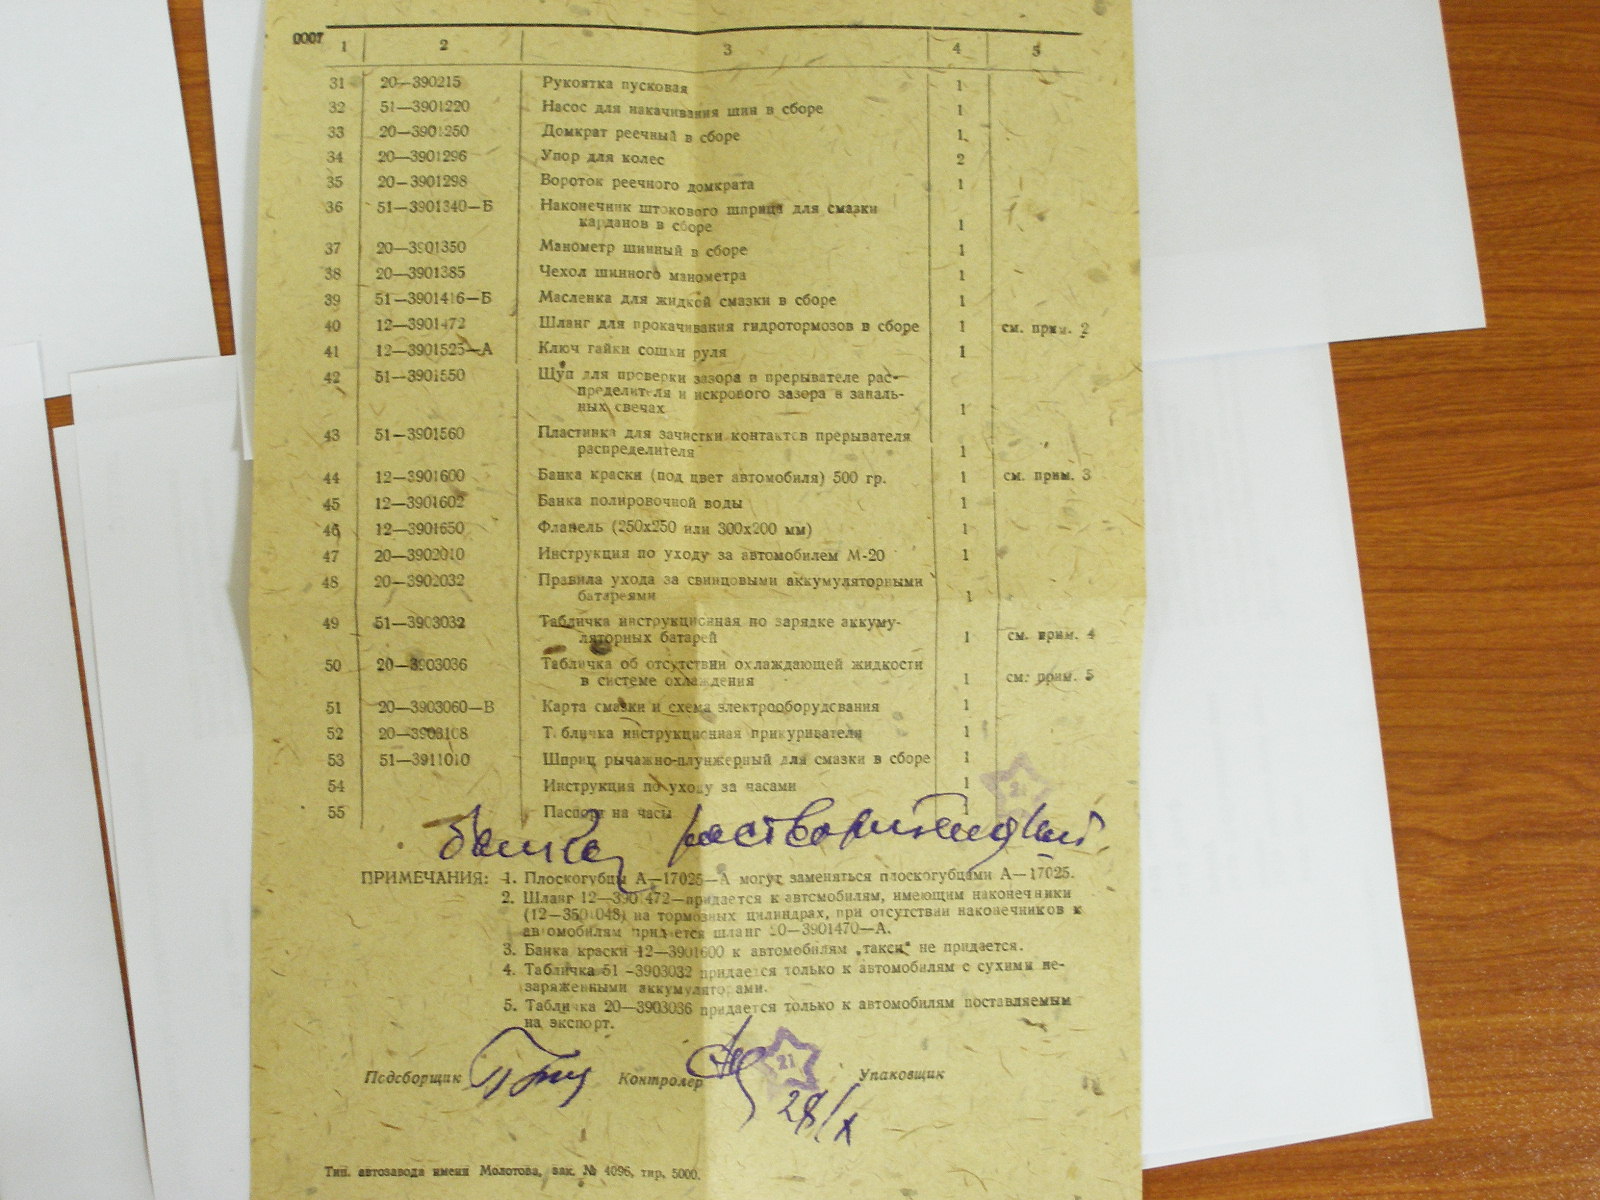 0007
1 2 3 4 5
31 20—390215 Рукоятка пусковая 1
32 51—3901220 Насос для накачивания шин в сборе 1
33 20—3901250 Домкрат реечный в сборе 1
34 20—3901296 Упор для колес 2
35 20—3901298 Вороток реечного домкрата 1
36 51—3901340—Б Наконечник штокового шприца для смазки
карданов в сборе 1
37 20—3901350 Манометр шинный в сборе 1
38 20—3901385 Чехол шинного манометра 1
39 51—3901416—Б Масленка для жидкой смазки в сборе 1
40 12—3901472 Шланг для прокачивания гидротормозов в сборе 1 см. прим. 2
41 12—3901525—А Ключ гайки сошки руля 1
42 51—3901550 Щуп для проверки зазора в прерывателе рас-
пределителя и искрового зазора в запаль-
ных свечах 1
43 51—3901560 Пластинка для зачистки контактов прерывателя
распределителя 1
44 12—3901600 Банка краски (под цвет автомобиля) 500 гр. 1 см. прим. 3
45 12—3901602 Банка полировочной воды 1
46 12—3901650 Фланель (250х250 или 300х200 мм) 1
47 20—3902010 Инструкция по уходу за автомобилем М-20 1
48 20—3902032 Правила ухода за свинцовыми аккумуляторными
батареями 1
49 51—3903032 Табличка инструкционная по зарядке аккуму-
ляторных батарей 1 см. прим. 4
50 20—3903036 Табличка об отсутствии охлаждающей жидкости
в системе охлаждения 1 см. прим. 5
51 20—3903060—В Карта смазки и схема электрооборудования 1
52 20—3903108 Табличка инструкционная прикуривателя 1
53 51—3911010 Шприц рычажно-плунжерный для смазки в сборе 1
54 Инструкция по уходу за часами 1
55 Паспорт на часы 1
21
банка
ПРИМЕЧАНИЯ: 1. Плоскогубцы А—17025—А могут заменяться плоскогубцами А—17025.
2. Шланг 12—3901472—придается к автомобилям, имеющим наконечники
(12—3501048) на тормозных цилиндрах, при отсутствии наконечников к
автомобилям придается шланг 20—3901470—А.
3. Банка краски 12—3901600 к автомобилям „такси" не придается.
4. Табличка 51—3903032 придается только к автомобилям с сухими не-
заряженными аккумуляторами.
5. Табличка 20—3903036 придается только к автомобилям поставляемым
на экспорт.
Подсборщик Контролер 21 Упаковщик
28/X
Тип. автозавода имени Молотова, зак. № 4096, тир. 5000.